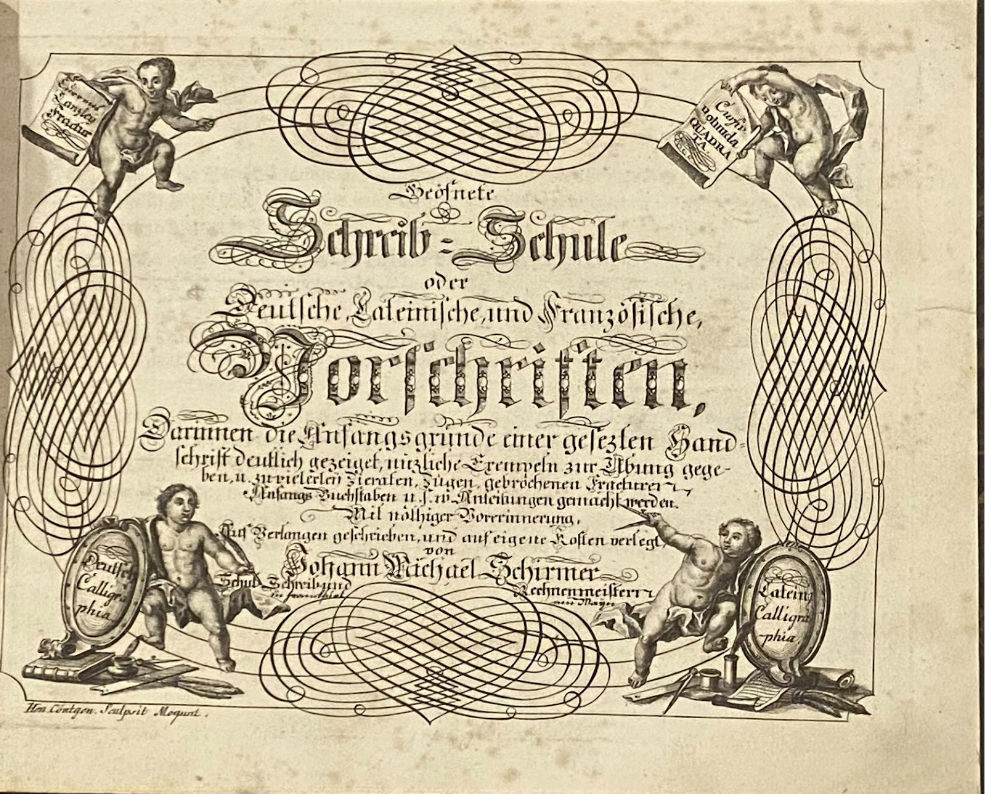 Current
Canzley
Fractur
Cursiv
QUADRA
TA.
Geöfnete
Schreib=Schule
oder
Deutsche, Lateinische, und Französische,
Vorschriften,
Darinnen die Anfangsgründe einer gesezten Hand=
schrift deutlich gezeiget, nüzliche Exempeln zur Übung gege=
ben, u. zu vielerley Zieraten, Zügen, gebrochenen Fracturen
Anfangs Buchstaben u. s. w. Anleitungen gemacht werden.
Mit nöthiger Vorerinnerung,
Auf Verlangen geschrieben, und auf eigene Kosten verlegt,
von
Johann Michael Schirmer
Schul= Schreib und Rechnenmeister
am Mayn
Deutsche
Calligra
phia
Latein
Calligra
-phia
Hen. Cöntgen. Sculpsit Mogunt.